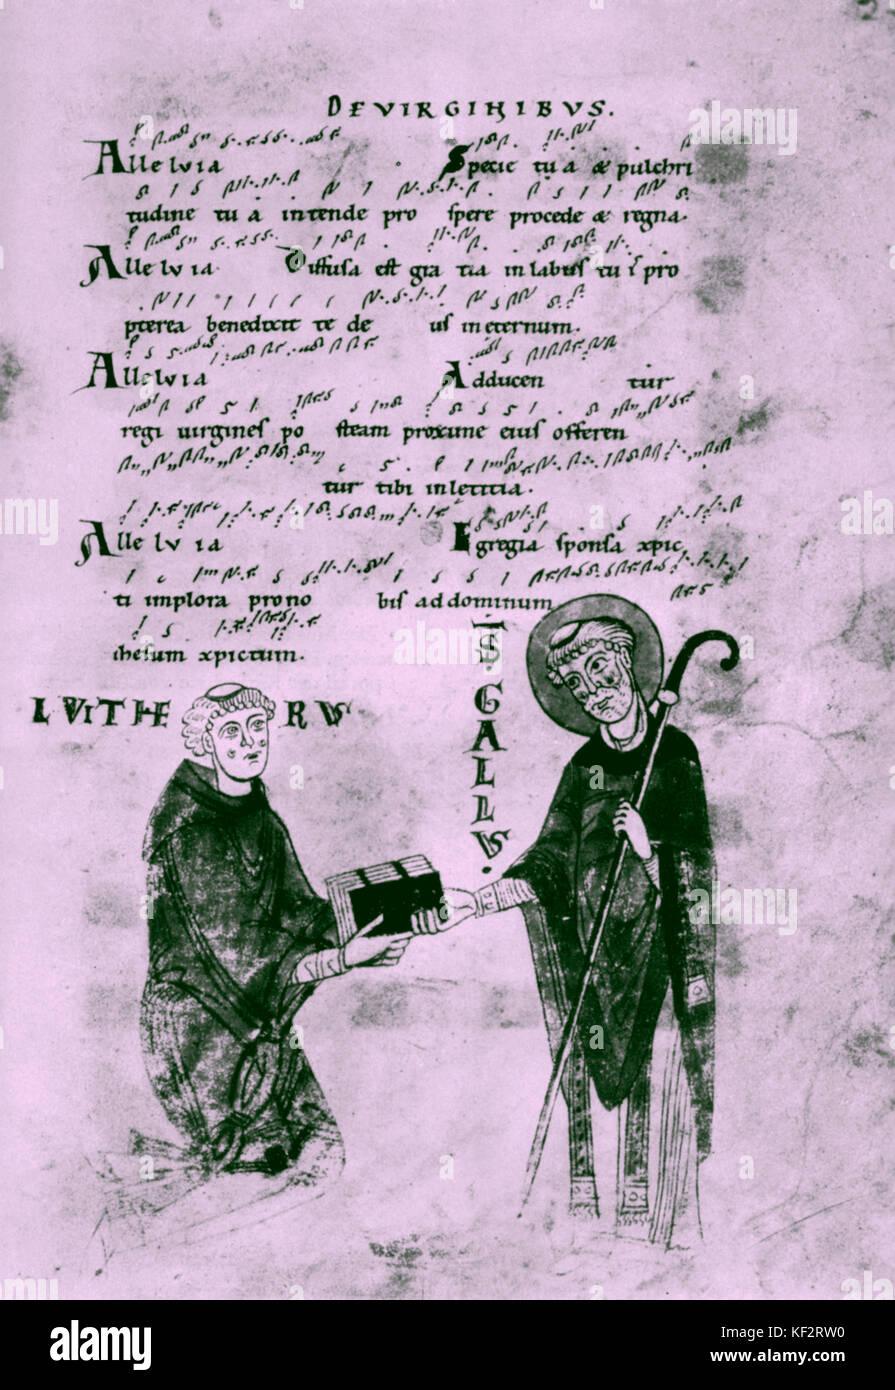 DE VIRGINIBUS.
Alleluia Specie tua & pulchri
tudine tu a intende pro spere procede & regna.
Alleluia. Diffusa est gra tia in labiis tu is pro
pterea benedixit te de us in eternum.
Alleluia Adducen tur
regi virgines po steam proxime eius offeren
tur tibi in leticia.
Alleluia Egregia sponsa xpic
ti implora pro no bis ad dominum
ihesum xpictum.
LVITHE RVS
S GALLVS.
a
alamy stock photo
KF2RW0
www.alamy.com